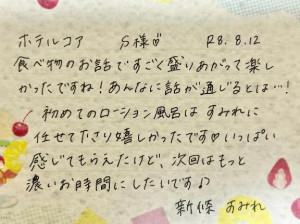 ホテルコア　S様♡　R8.8.12
食べ物のお話ですごく盛りあがって楽し
かったですね！あんなに話が通じるとは…！
初めてのローション風呂は すみれに
任せて下さり嬉しかったです♡いっぱい
感じてもらえたけど、次回はもっと
濃いお時間にしたいです♪
新條 すみれ